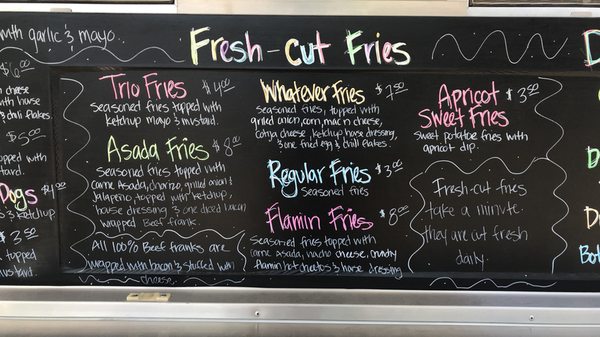 with garlic & mayo.
Fresh-cut Fries
$6.00
cheese
with house
& chili flakes.
$5.00
topped with
stard.
Dogs $4
topped with
& ketchup
$3.50
topped with
ustard.
Trio Fries $4.00
Seasoned fries topped with
ketchup mayo & mustard.
Asada Fries $8.00
Seasoned fries topped with
carne Asada, chorizo, grilled onion &
Jalapeño, topped with ketchup,
house dressing & one diced bacon
wrapped Beef frank
All 100% Beef franks are
wrapped with bacon & stuffed with
cheese.
Whatever Fries $7.50
Seasoned fries, topped with
grilled onion, corn, mac n cheese,
cotija cheese, ketchup, house dressing,
& one fried egg & chili flakes.
Regular Fries $3.00
Seasoned fries
Flamin Fries $8.00
Seasoned fries topped with
carne Asada, nacho cheese, crunchy
flamin hot cheetos & house dressing
Apricot $3.50
Sweet Fries
Sweet potatoe fries with
apricot dip.
Fresh-cut fries
take a minute.
they are cut fresh
daily.
Bot